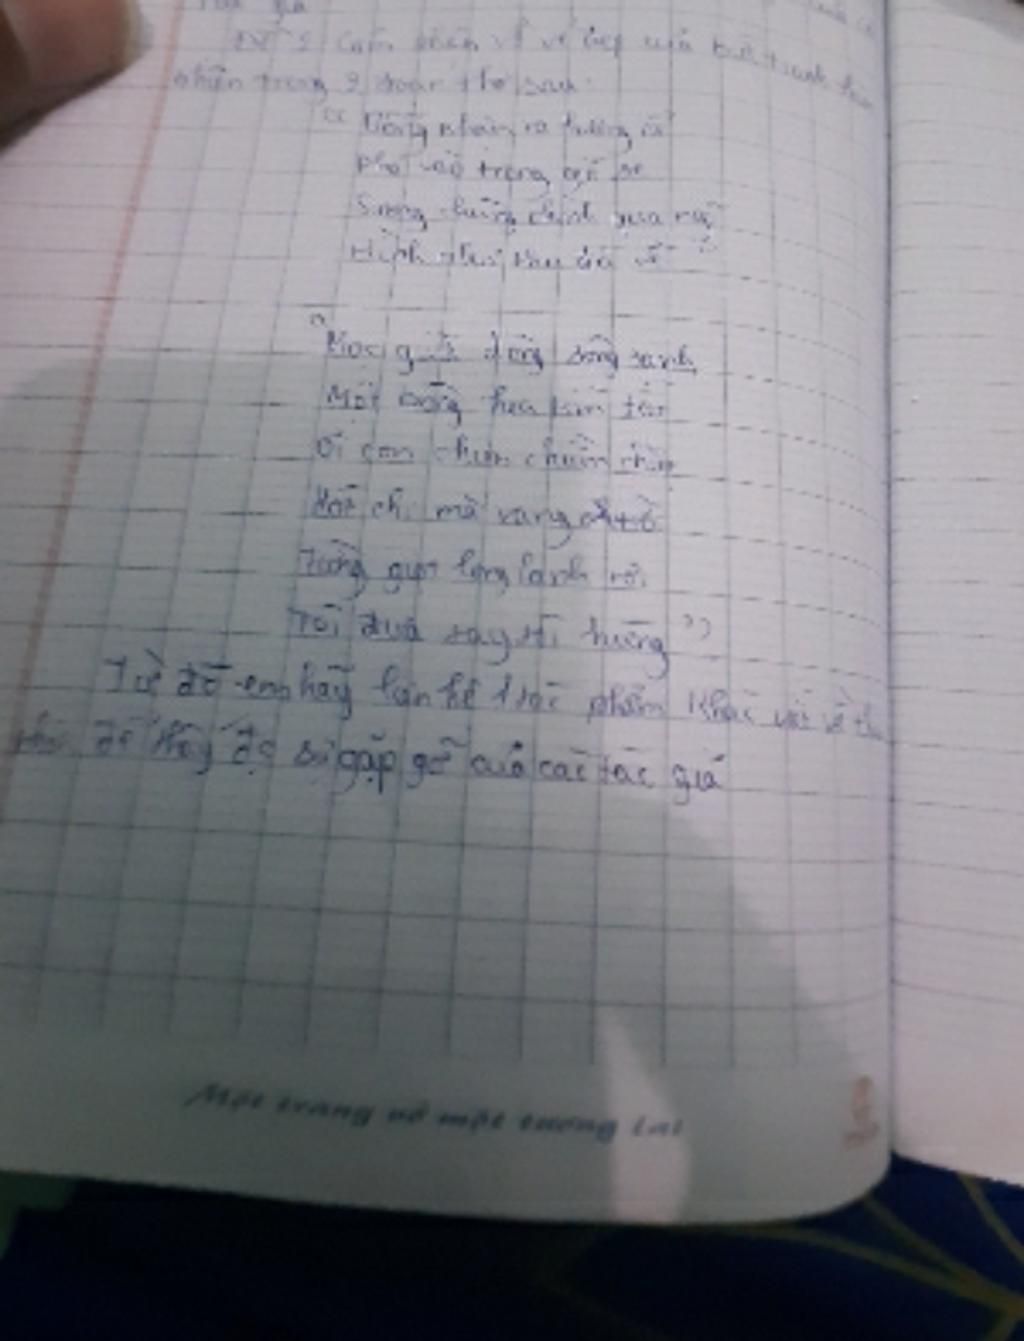 Đề 2 Cảm nhận về vẻ đẹp của bức tranh thiên
nhiên trong 2 đoạn thơ sau:
"Bỗng nhận ra hương ổi
Phả vào trong gió se
Sương chùng chình qua ngõ
Hình như thu đã về"
"Mọc giữa dòng sông xanh
Một bông hoa tím biếc
Ơi con chim chiền chiện
Hót chi mà vang trời
Từng giọt long lanh rơi
Tôi đưa tay tôi hứng")
Từ đó em hãy liên hệ 1 tác phẩm khác
để thấy đc sự gặp gỡ của các tác giả
Một trang vở một tương lai